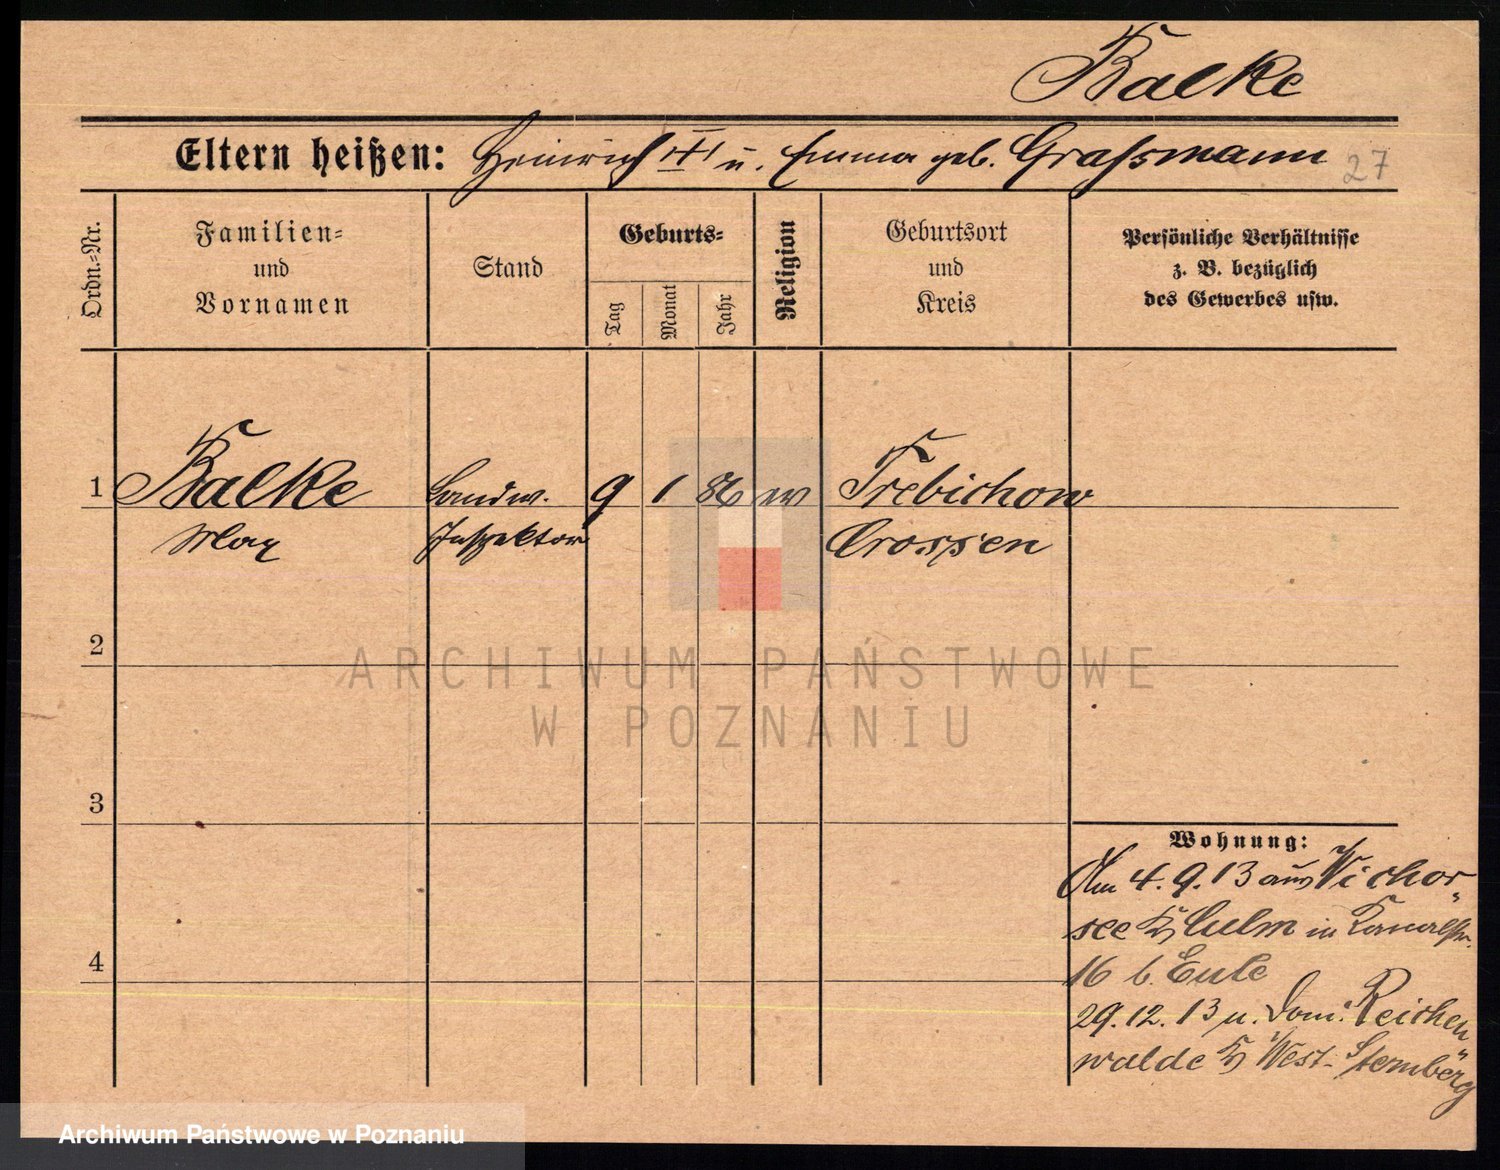 Balke
Eltern heißen: Heinrich u. Emma geb. Graßmann 27
Ordn.-Nr.
Familien-
und
Vornamen
Stand
Geburts-
Tag
Monat
Jahr
Religion
Geburtsort
und
Kreis
Persönliche Verhältnisse
z. B. bezüglich
des Gewerbes usw.
1 Balke Landw. 9 1 86 ev Trebichow
Max Inspektor Crossen
2
3
4
Wohnung:
Am 4.9.13 aus Wichor-
see Kr Culm in Kanalstr.
16 b. Eule
29.12.13 n. Dom. Reichen
walde Kr West-Sternberg
ARCHIWUM PAŃSTWOWE
W POZNANIU
Archiwum Państwowe w Poznaniu